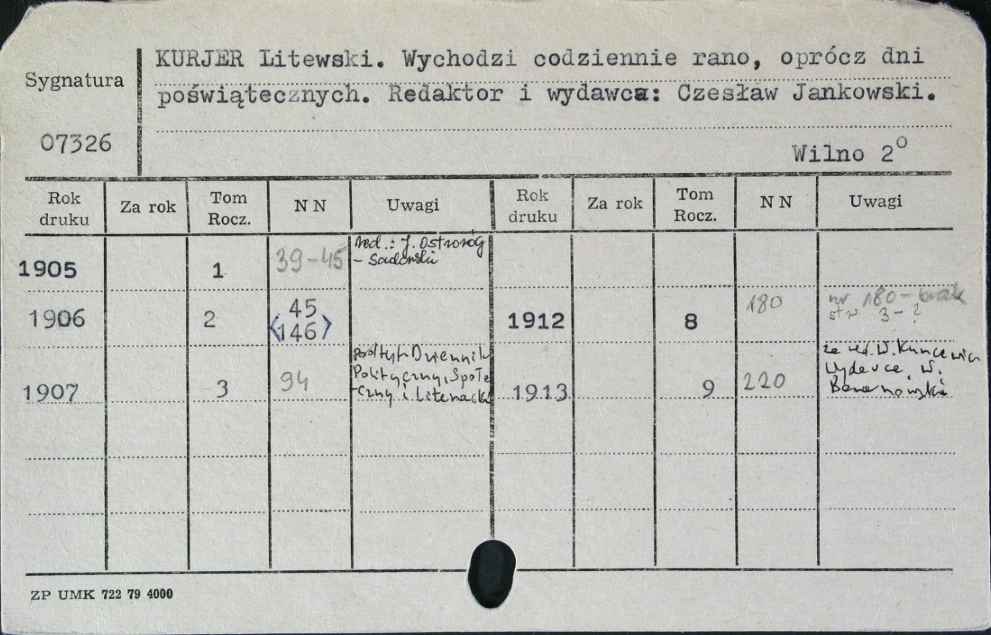 KURJER Litewski. Wychodzi codziennie rano, oprócz dni
Sygnatura
poświątecznych. Redaktor i wydawca: Czesław Jankowski.
07326
Wilno 2°
Rok druku Za rok Tom Rocz. NN Uwagi Rok druku Za rok Tom Rocz. NN Uwagi
red.: J. Ostroróg
1905 1 39-45 - Sadowski
45 180 nr 180 - brak
1906 2 <146> 1912 8 str 3 - ?
podtyt. Dziennik ze red. W. Kuncewicz
Polityczny, Społe Wydawca W.
1907 3 94 -czny i Literacki 1913 9 220
ZP UMK 722 79 4000